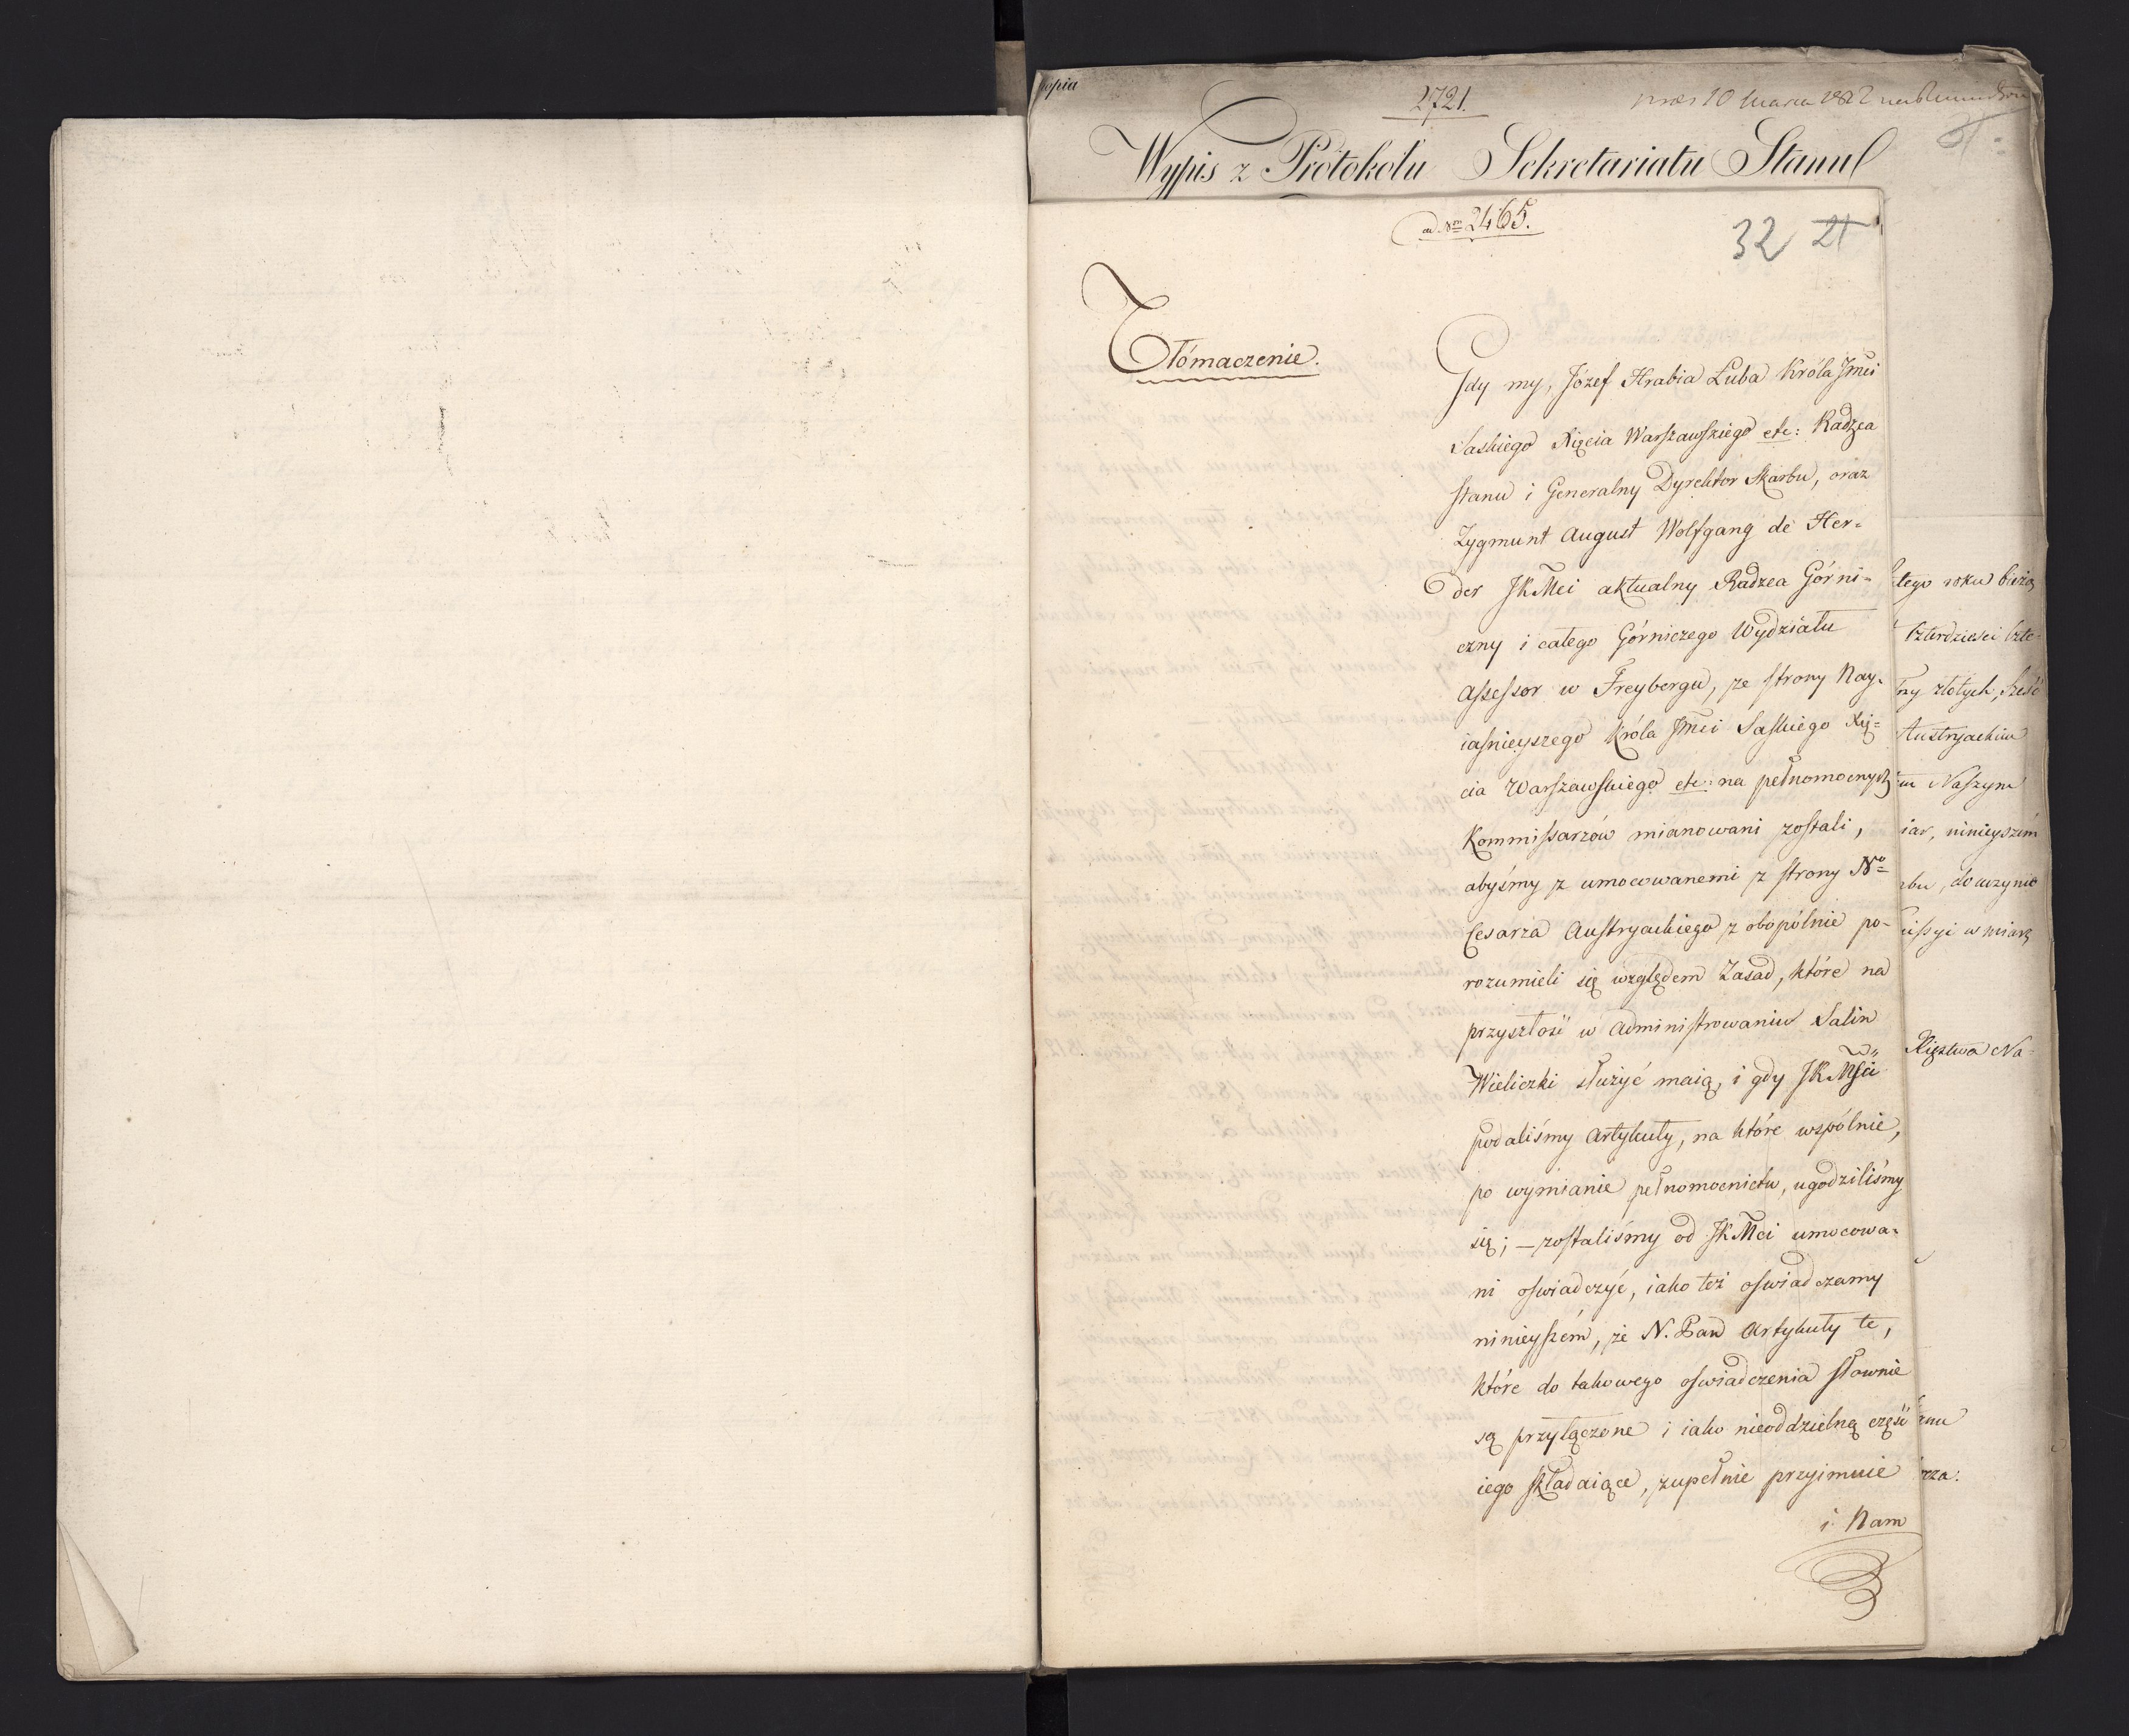 opia
2721.
Wypis z Protokołu Sekretariatu Stanu
ad Nro 2465.
32 21
Tłómaczenie.
Gdy my, Józef Hrabia Łuba Króla Jmci
Saskiego Xięcia Warszawskiego etc: Radzca
Stanu i Generalny Dyrektor Skarbu, oraz
Zygmunt August Wolfgang de Her=
der JKMci aktualny Radzca Górni=
czny i całego Górniczego Wydziału
Assessor w Freybergu, ze strony Nay=
iaśnieyszego Króla Jmci Saskiego Xię=
cia Warszawskiego etc: na pełnomocnych
Kommissarzów mianowani zostali,
abyśmy z umocowanemi z strony No
Cesarza Austryackiego z obopólnie po=
rozumieli się względem Zasad, które na
przyszłość w administrowaniu Salin
Wieliczki służyć maią, i gdy JKMści
podaliśmy Artykuły, na które wspólnie,
po wymianie pełnomocnictw, ugodziliśmy
się; — zostaliśmy od JKMci umocowa=
ni oświadczyć, iako też oświadczamy
ninieyszém, że N. Pan Artykuły te,
które do takowego oświadczenia słownie
są przyłączone i iako nieoddzielną część
iego składaiące, zupełnie przyimuie
i Nam
tego roku bieżą
Czterdzieści Czte=
ny złotych, sześć
Austryackim
m Naszym
iar, ninieyszém
rbu, do uczynie
issyi w miarę
Xięztwa Na=
mu
rza.